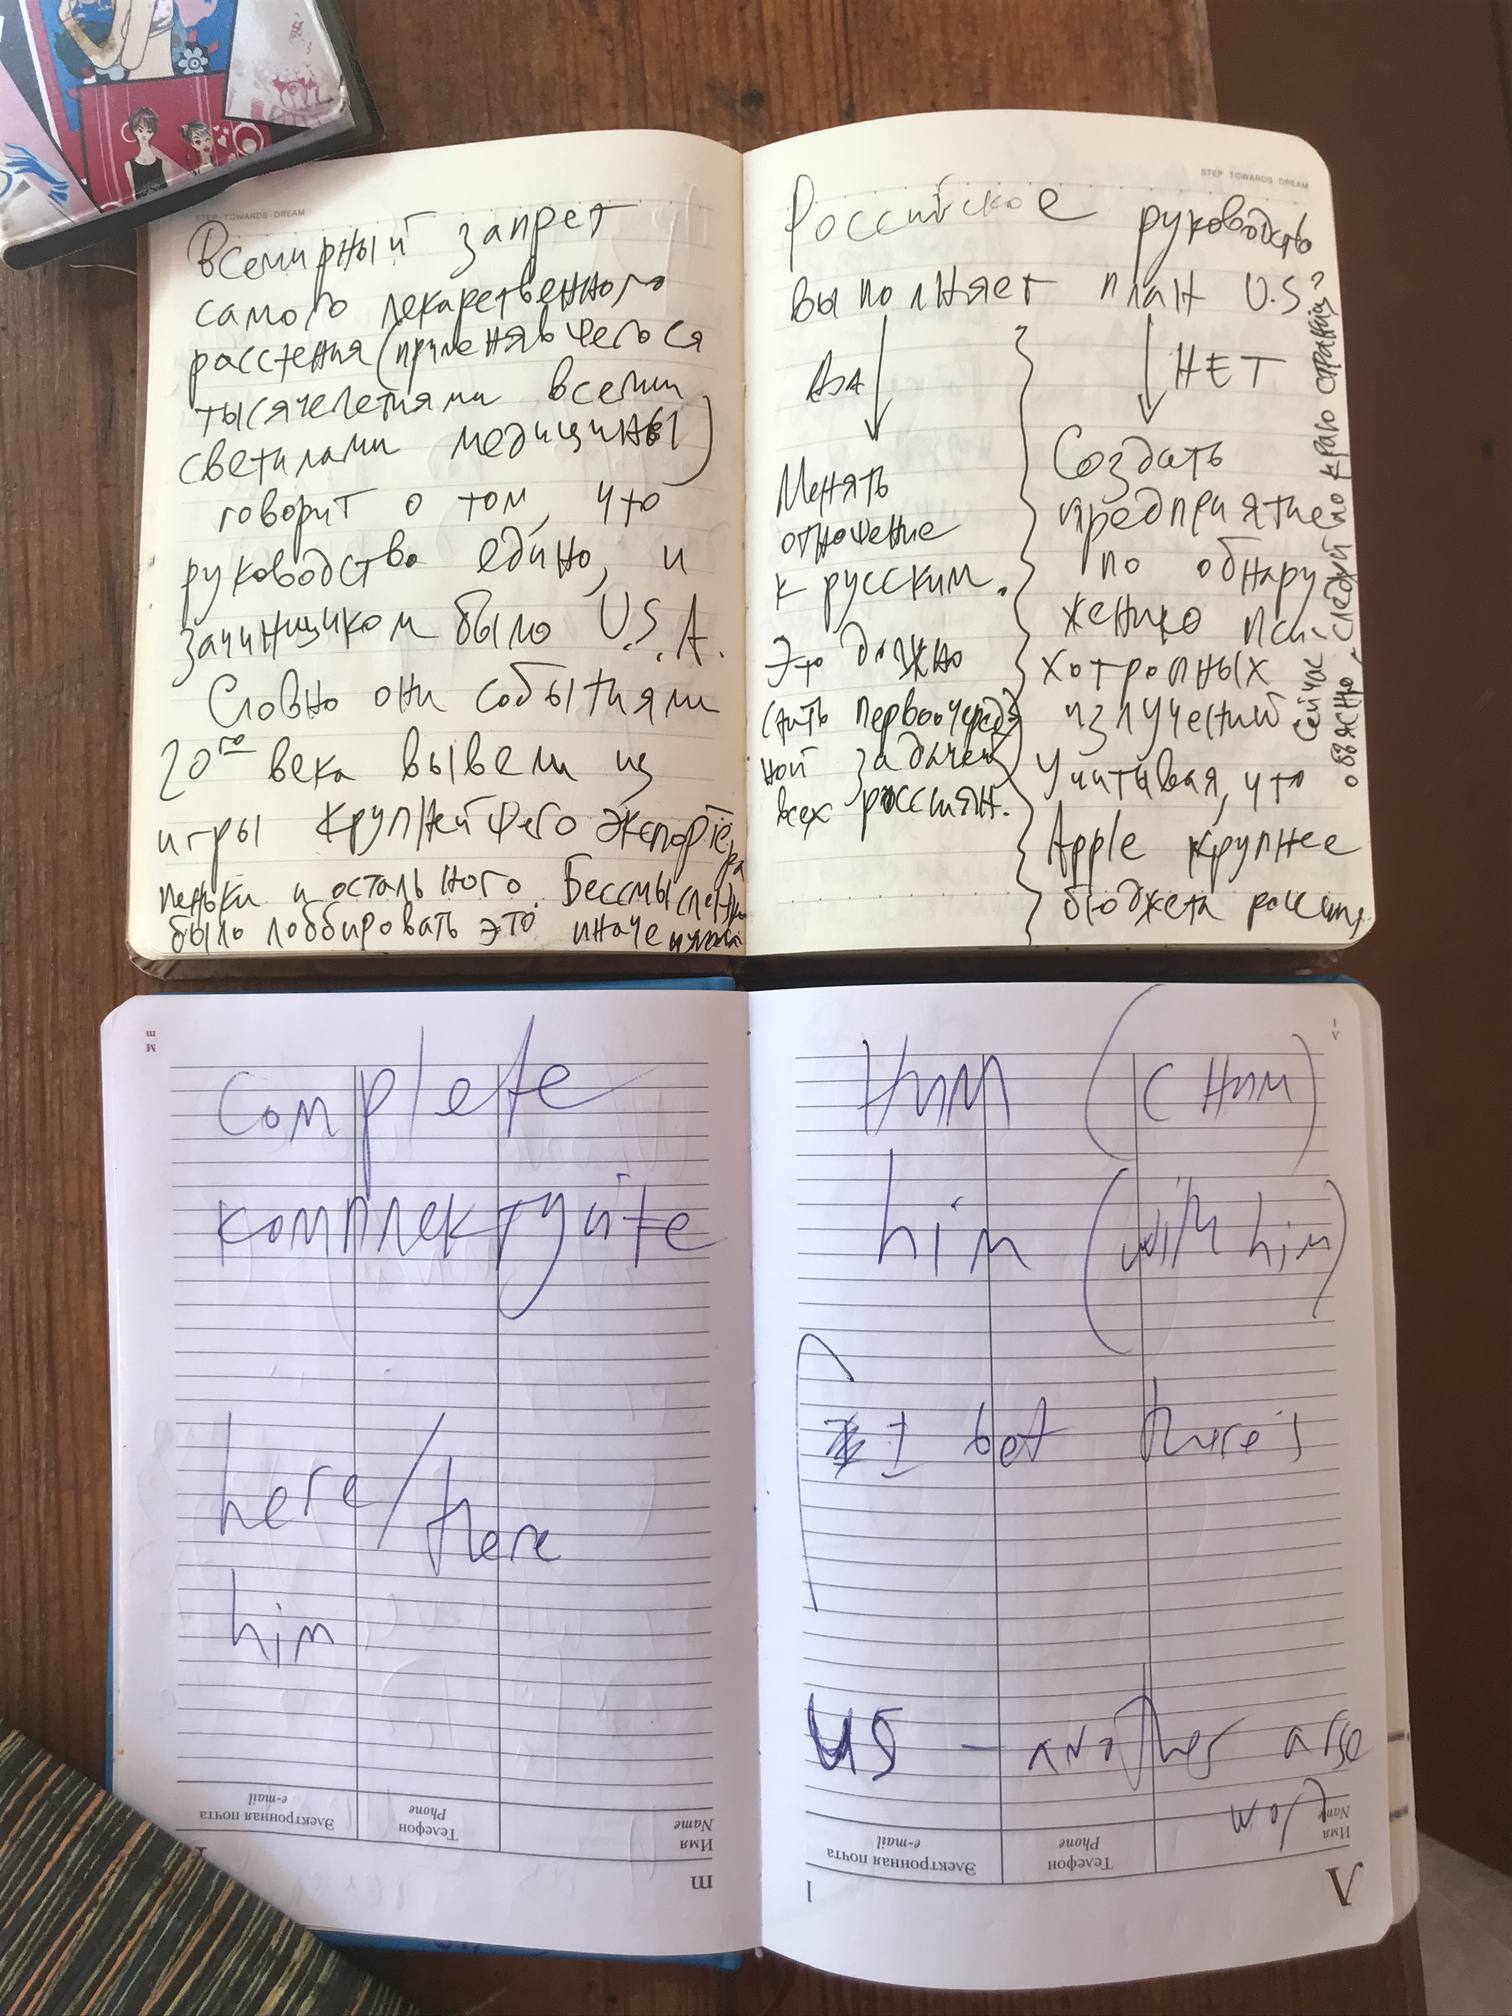 STEP TOWARDS DREAM
Всемирный запрет
самого лекарственного
растения (применявчегося
тысячелетиями всеми
светилами медицины)
говорит о том, что
руководство едино, и
зачинщиком было U.S.A.
Словно они событиями
20го века вывели из
игры крупнейшего экспортёра
пеньки и остального. Бессмысленно
было лоббировать это иначе
STEP TOWARDS DREAM
Российское руководство
выполняет план U.S?
Да
Менять
отношение
к русским.
Это должно
стать первоочеред
ной задачей
всех россиян.
НЕТ
Создать
предприятие
по обнару
жению пси-
хотропных
излучений
Учитывая, что
Apple крупнее
бюджета россии,
сейчас объясню, следуй по краю страницы
M
m
complete
комплектуйте
here/there
him
Имя
Name
Телефон
Phone
Электронная почта
e-mail
m
Л
l
Ним (с ним)
him (with him)
I bet there's
US - another arse
Имя
Name
Телефон
Phone
Электронная почта
e-mail
Л
l